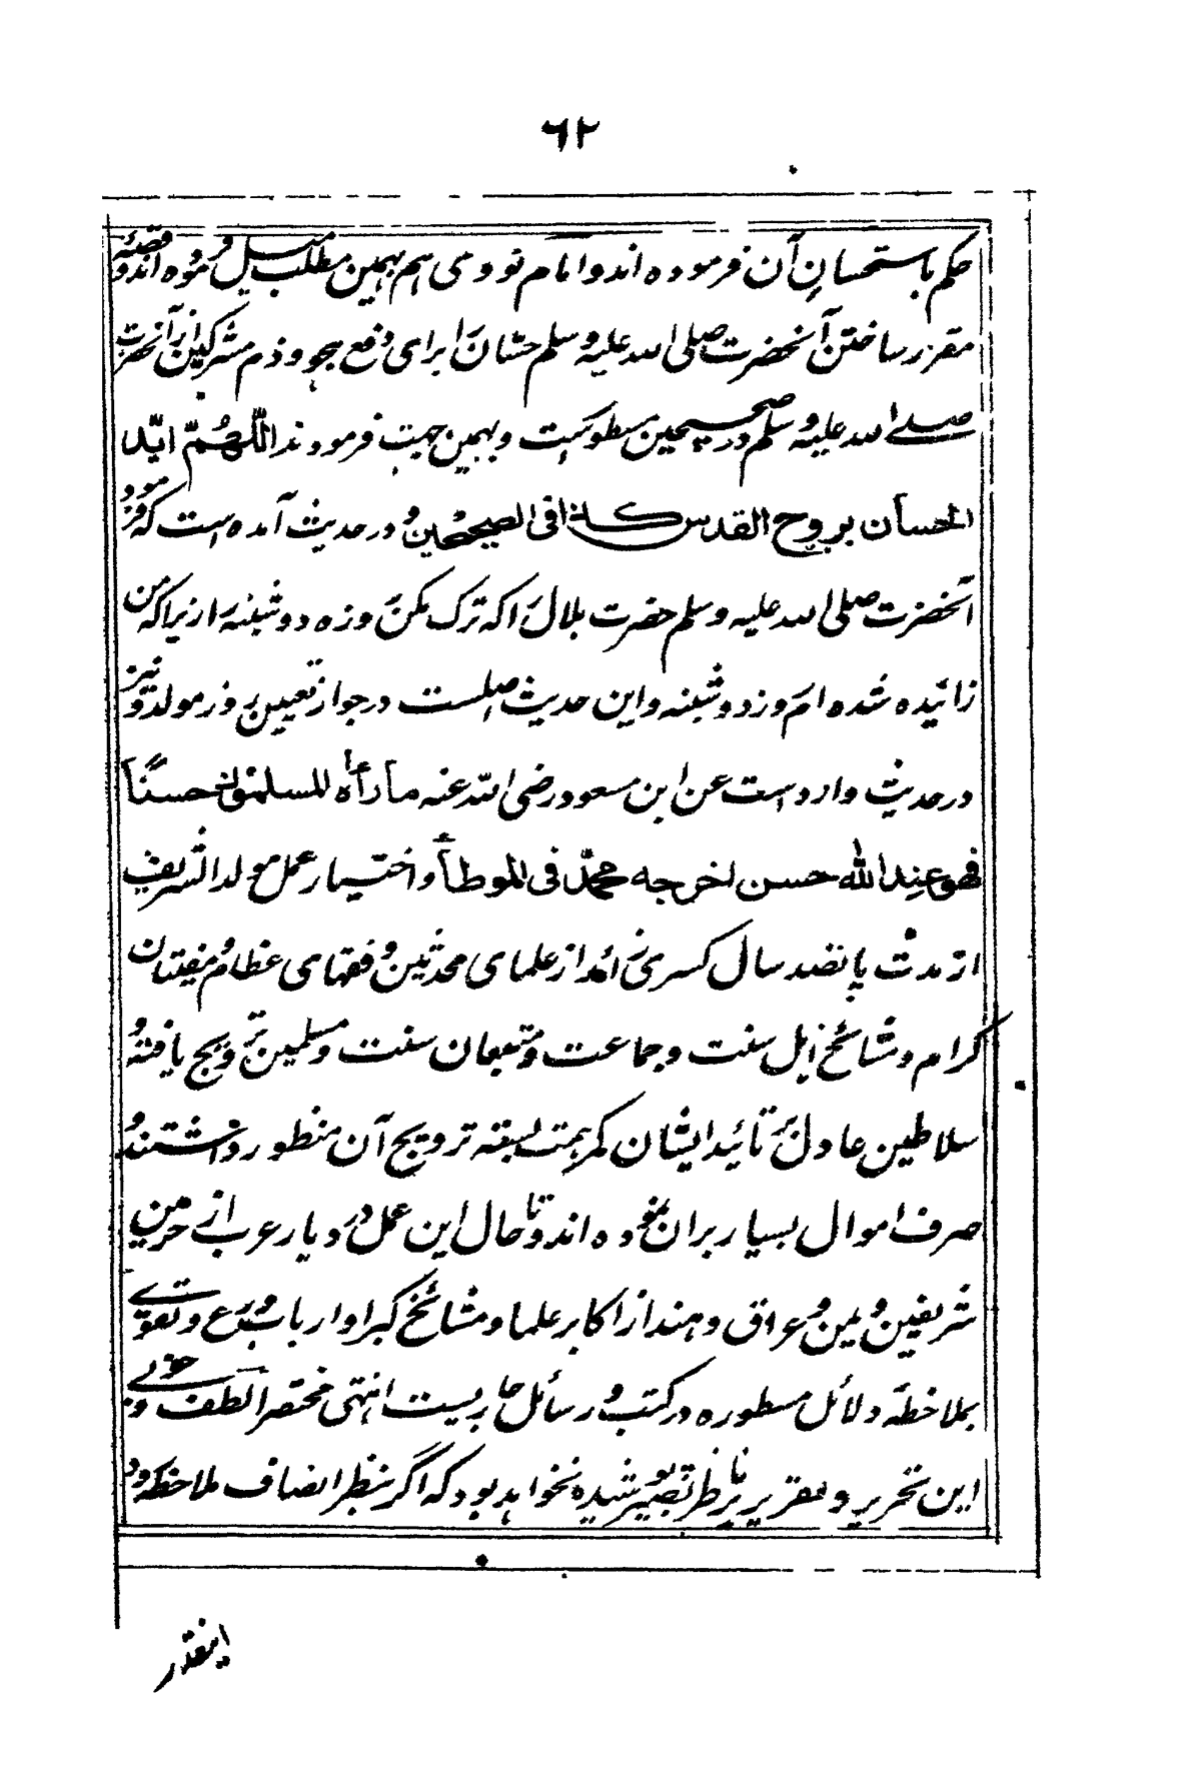 ۶۲
حکم باستحسان آن فرموده اند و امام نووی هم بهمین مطلب میل فرموده اند و قصهٔ
مقرر ساختن آنحضرت صلی الله علیه و سلم حسان را برای دفع هجو و ذم مشرکین از آنحضرت
صلے الله علیه و سلم در صحیحین مسطورست و بهمین جهت فرمودند اللّٰهُمّ ایّد
الحسان بروح القدس کذا فی الصحیحین و در حدیث آمده است که فرمود
آنحضرت صلی الله علیه وسلم حضرت بلال را که ترک مکن روزه دوشنبه را زیرا که من
زائیده شده ام روز دوشنبه و این حدیث اصلست در جواز تعیین روز مولد و نیز
در حدیث وارد است عن ابن مسعود رضی الله عنه ما رأه المسلمون حسنًا
فهو عند الله حسن اخرجه محمّد فی الموطأ و اختیار عمل مولد الشریف
از مدت پانصد سال کسری زائد از علمای محدثین و فقهای عظام و مفتیان
کرام و مشائخ اهل سنت و جماعت و متبعان سنت و مسلمین ترویج یافته و
سلاطین عادل بر تائید ایشان کمر همت بسته ترویج آن منظور داشتند و
صرف اموال بسیار بران نموده اند و تا حال این عمل در دیار عرب از حرمین
شریفین و یمن و عراق و هند از اکابر علما و مشائخ کبرا و ارباب ورع و تقوے
بملاحظهٔ دلائل مسطوره در کتب و رسائل جاریست انتهی مختصرا لطف و خوبی
این تحریر و تقریر بر ناظر بصیر پوشیده نخواهد بود که اگر بنظر انصاف ملاحظه رود
اینقدر